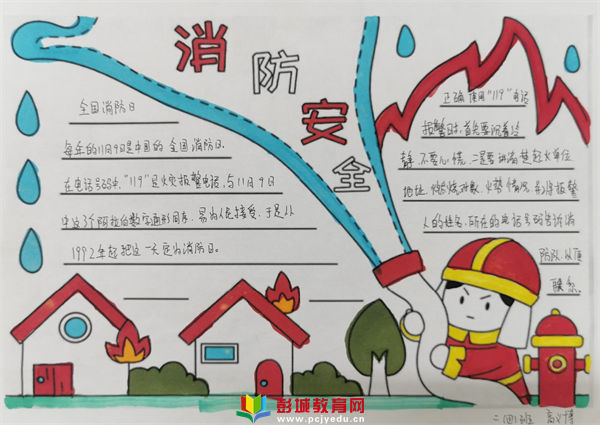 消防安全
全国消防日
每年的11月9日是中国的全国消防日.
在电话号码中,"119"是火灾报警电话,与11月9日
中这3个阿拉伯数字通形同序,易为人民接受,于是从
1992年起把这一天定为消防日。
正确使用"119"电话
报警时,首先要沉着冷
静,不要心慌,二是要讲清楚起火单位
地址,燃烧对象,火势情况,并将报警
人的姓名,所在的电话号码告诉消
防队,以便
联系.
彭城教育网
www.pcjyedu.cn
二(四)班